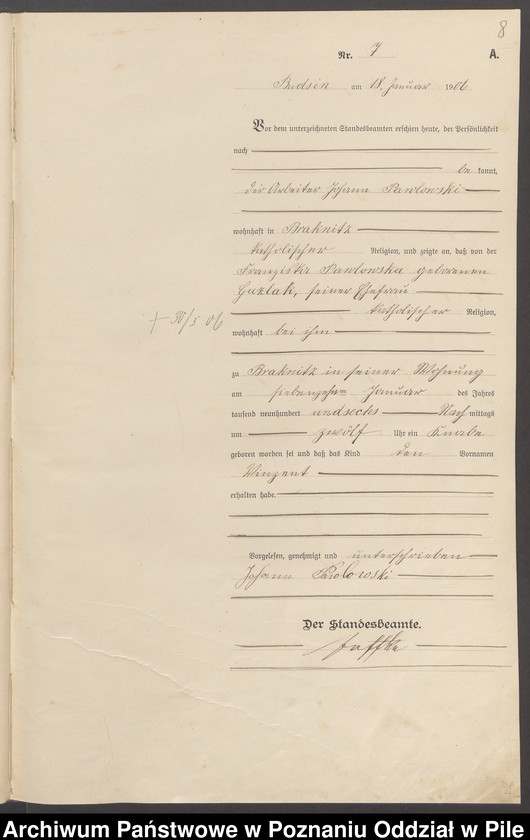 8
Nr. 7 A.
Budsin am 18. Januar 1906
Vor dem unterzeichneten Standesbeamten erschien heute, der Persönlichkeit
nach
be kannt,
der Arbeiter Johann Pawlowski
wohnhaft in Braknitz
katholischer Religion, und zeigte an, daß von der
Franziska Pawlowska geborenen
Guzlak, seiner Ehefrau
katholischer Religion,
+ 30/5 06
wohnhaft bei ihm
zu Braknitz in seiner Wohnung
am siebenzehnten Januar des Jahres
tausend neunhundert undsechs Nach mittags
um zwölf Uhr ein Knabe
geboren worden sei und daß das Kind den Vornamen
Vinzent
erhalten habe.
Vorgelesen, genehmigt und unterschrieben
Johann Pawlowski
Der Standesbeamte.
Archiwum Państwowe w Poznaniu Oddział w Pile